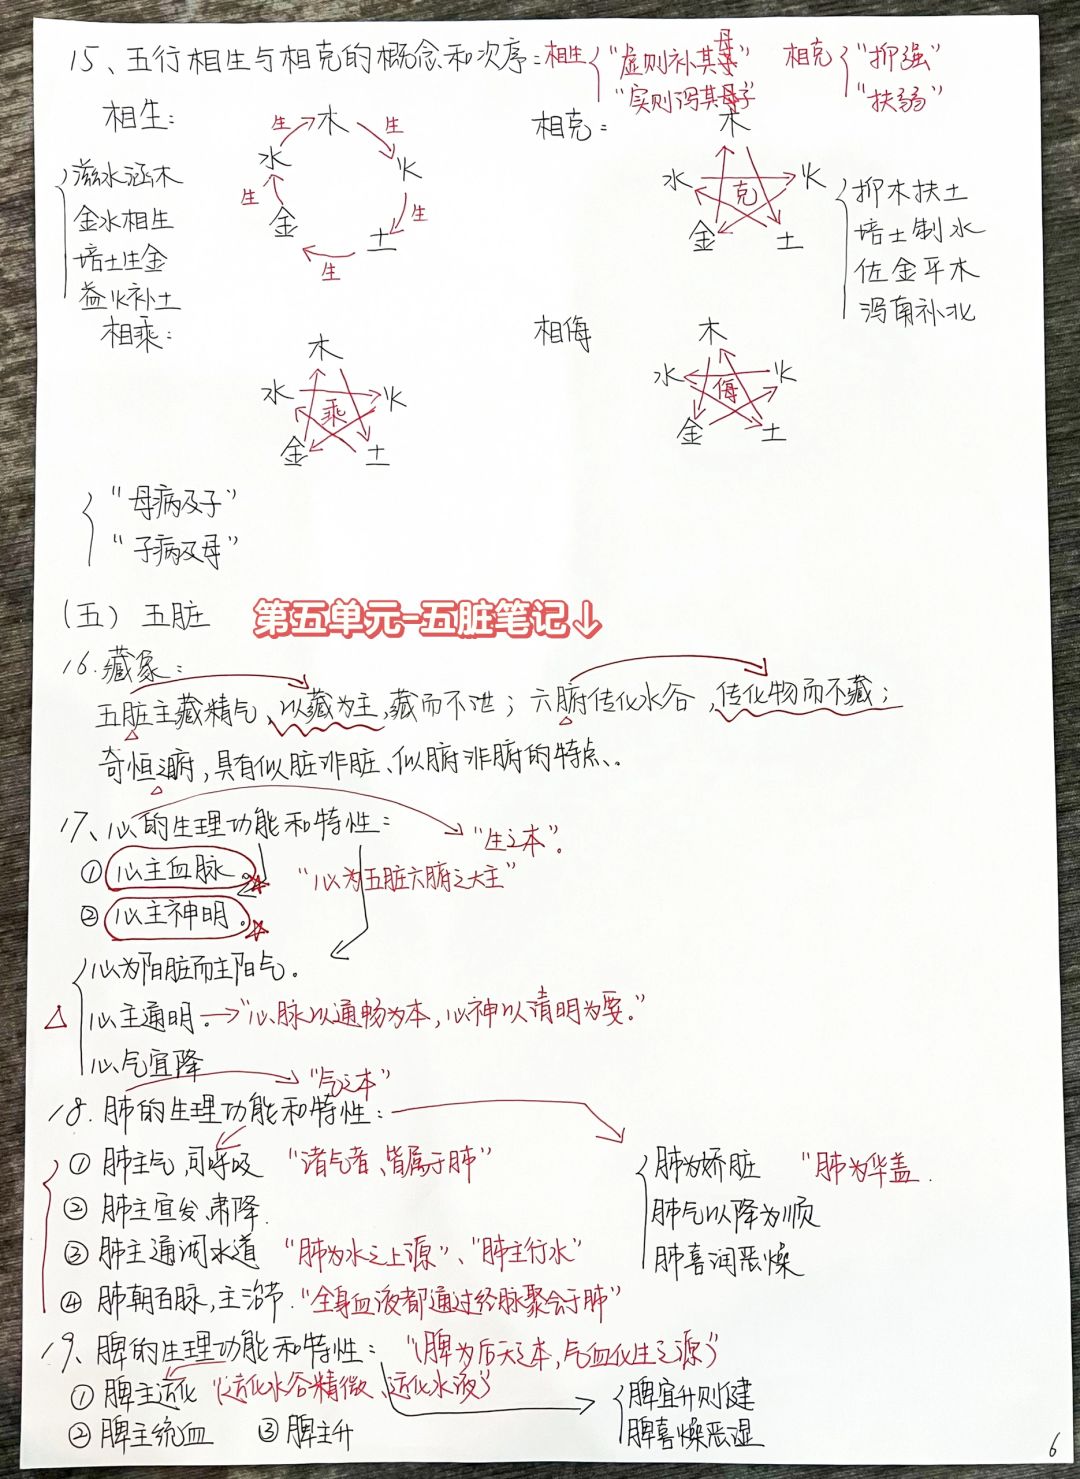 15、五行相生与相克的概念和次序：相生{“虚则补其母” 相克{“抑强”
“实则泻其子” “扶弱”
相生：
生 木 生
水 火
生 金 土 生
生
滋水涵木
金水相生
培土生金
益火补土
相克：
木
水 克 火
金 土
抑木扶土
培土制水
佐金平木
泻南补北
相乘：
木
水 乘 火
金 土
相侮
木
水 侮 火
金 土
“母病及子”
“子病及母”
(五) 五脏 第五单元-五脏笔记↓
16.藏象：
五脏主藏精气，以藏为主，藏而不泄；六腑传化水谷，传化物而不藏；
奇恒之腑，具有似脏非脏、似腑非腑的特点、。
17、心的生理功能和特性： “生之本”。
①心主血脉。 “心为五脏六腑之大主”
②心主神明。
心为阳脏而主阳气。
△ 心主通明。→“心脉以通畅为本，心神以清明为要。”
心气宜降
“气之本”
18.肺的生理功能和特性：
①肺主气，司呼吸 “诸气者、皆属于肺” 肺为娇脏 “肺为华盖.
②肺主宣发、肃降. 肺气以降为顺
③肺主通调水道 “肺为水之上源”、“肺主行水” 肺喜润恶燥
④肺朝百脉，主治节.“全身血液都通过经脉聚会于肺”
19、脾的生理功能和特性： “(脾为后天之本，气血化生之源)”
①脾主运化 “(运化水谷精微、运化水液)” 脾宜升则健
②脾主统血 ③脾主升 脾喜燥恶湿
6